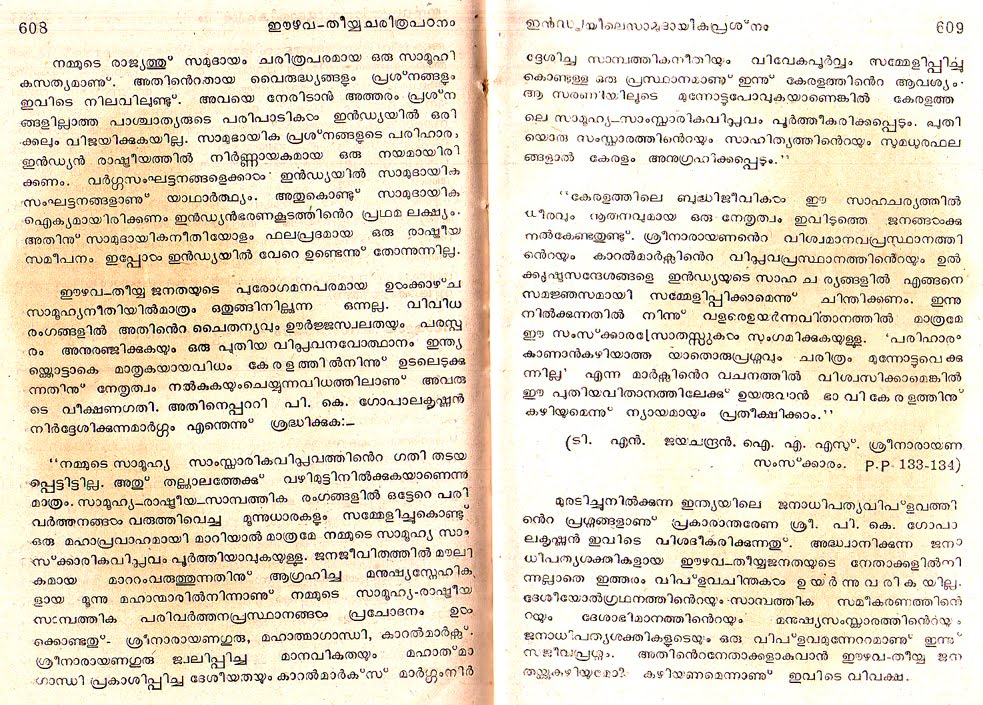 608 ഈഴവ-തീയ്യചരിത്രപഠനം
നമ്മുടെ രാജ്യത്തു് സമുദായം ചരിത്രപരമായ ഒരു സാമൂഹി
കസത്യമാണു്. അതിൻെറതായ വൈരുദ്ധ്യങ്ങളും പ്രശ്നങ്ങളും
ഇവിടെ നിലവിലുണ്ടു്. അവയെ നേരിടാൻ അത്തരം പ്രശ്ന
ങ്ങളില്ലാത്ത പാശ്ചാത്യരുടെ പരിപാടികൾ ഇന്ത്യയിൽ ഒരി
ക്കലും വിജയിക്കുകയില്ല. സാമുദായിക പ്രശ്നങ്ങളുടെ പരിഹാരം,
ഇൻഡ്യൻ രാഷ്ട്രീയത്തിൽ നിർണ്ണായകമായ ഒരു നയമായിരി
ക്കണം. വർഗ്ഗസംഘട്ടനങ്ങളെക്കാൾ ഇൻഡ്യയിൽ സാമുദായിക
സംഘട്ടനങ്ങളാണു് യാഥാർത്ഥ്യം. അതുകൊണ്ടു് സാമുദായിക
ഐക്യമായിരിക്കണം ഇൻഡ്യൻഭരണകൂടത്തിൻെറ പ്രഥമ ലക്ഷ്യം.
അതിനു് സാമുദായികനീതിയോളം ഫലപ്രദമായ ഒരു രാഷ്ട്രീയ
സമീപനം ഇപ്പോൾ ഇൻഡ്യയിൽ വേറെ ഉണ്ടെന്നു് തോന്നുന്നില്ല.
ഈഴവ-തീയ്യ ജനതയുടെ പുരോഗമനപരമായ ഉൾക്കാഴ്ച
സാമൂഹ്യനീതിയിൽമാത്രം ഒതുങ്ങിനില്ലുന്ന ഒന്നല്ല. വിവിധ
രംഗങ്ങളിൽ അതിൻെറ ചൈതന്യവും ഊർജ്ജസ്വലതയും പരസ്പ
രം അനുരഞ്ജിക്കുകയും ഒരു പുതിയ വിപ്ലവനവോത്ഥാനം ഇന്ത്യ
യ്ക്കൊട്ടാകെ മാതൃകയായവിധം കേരളത്തിൽനിന്നു് ഉടലെടുക്കു
ന്നതിനു് നേതൃത്വം നൽകുകയുംചെയ്യുന്നവിധത്തിലാണു് അവരു
ടെ വീക്ഷണഗതി. അതിനെപ്പററി പി. കെ. ഗോപാലകൃഷ്ണൻ
നിർദ്ദേശിക്കുന്നമാർഗ്ഗം എന്തെന്നു് ശ്രദ്ധിക്കുക:—
"നമ്മുടെ സാമൂഹ്യ സാംസ്കാരികവിപ്ലവത്തിൻെറ ഗതി തടയ
പ്പെട്ടിട്ടില്ല. അതു് തല്ക്കാലത്തേക്കു് വഴിമുട്ടിനിൽക്കുകയാണെന്നു
മാത്രം. സാമൂഹ്യ—രാഷ്ട്രീയ—സാമ്പത്തിക രംഗങ്ങളിൽ ഒട്ടേറെ പരി
വർത്തനങ്ങൾ വരുത്തിവെച്ച മൂന്നുധാരകളും സമ്മേളിച്ചുകൊണ്ടു്
ഒരു മഹാപ്രവാഹമായി മാറിയാൽ മാത്രമേ നമ്മുടെ സാമൂഹ്യ സാം
സ്ക്കാരികവിപ്ലവം പൂർത്തിയാവുകയുള്ളു. ജനജീവിതത്തിൽ മൗലി
കമായ മാററംവരുത്തുന്നതിനു് ആഗ്രഹിച്ച മനുഷ്യസ്നേഹിക
ളായ മൂന്നു മഹാന്മാരിൽനിന്നാണു് നമ്മുടെ സാമൂഹ്യ-രാഷ്ട്രീയ
സമ്പത്തിക പരിവർത്തനപ്രസ്ഥാനങ്ങൾ പ്രചോദനം ഉൾ
ക്കൊണ്ടതു്- ശ്രീനാരായണഗുരു, മഹാത്മാഗാന്ധി, കാറൽമാർക്സ്.
ശ്രീനാരായണഗുരു ജ്വലിപ്പിച്ച മാനവികതയും മഹാത്മാ
ഗാന്ധി പ്രകാശിപ്പിച്ച ദേശീയതയും കാറൽമാർക്സ് മാർഗ്ഗംനിർ
ഇൻഡ്യയിലെസാമുദായികപ്രശ്നം 609
ദ്ദേശിച്ച സാമ്പത്തികനീതിയും വിവേകപൂർവ്വം സമ്മേളിപ്പിച്ചു
കൊണ്ടുള്ള ഒരു പ്രസ്ഥാനമാണു് ഇന്നു് കേരളത്തിൻെറ ആവശ്യം.
ആ സരണിയിലൂടെ മുന്നോട്ടുപോവുകയാണെങ്കിൽ കേരളത്തി
ലെ സാമൂഹ്യ—സാംസ്കാരികവിപ്ലവം പൂർത്തീകരിക്കപ്പെടും. പുതി
യൊരു സംസ്കാരത്തിൻെറയും സാഹിത്യത്തിൻെറയും സുമധുരഫല
ങ്ങളാൽ കേരളം അനുഗ്രഹിക്കപ്പെടും."
"കേരളത്തിലെ ബുദ്ധിജീവികൾ ഈ സാഹചര്യത്തിൽ
ധീരവും നൂതനവുമായ ഒരു നേതൃത്വം ഇവിടുത്തെ ജനങ്ങൾക്കു
നൽകേണ്ടതുണ്ടു്. ശ്രീനാരായണൻെറ വിശ്വമാനവപ്രസ്ഥാനത്തി
ൻെറയും കാറൽമാർക്സിൻെറ വിപ്ലവപ്രസ്ഥാനത്തിൻെറയും ഉൽ
ക്കൃഷ്ടസന്ദേശങ്ങളെ ഇൻഡ്യയുടെ സാഹചര്യങ്ങളിൽ എങ്ങനെ
സമജ്ഞസമായി സമ്മേളിപ്പിക്കാമെന്നു് ചിന്തിക്കണം. ഇന്നു
നിൽക്കുന്നതിൽ നിന്ന് വളരെഉയർന്നവിതാനത്തിൽ മാത്രമേ
ഈ സംസ്ക്കാരസ്രോതസ്സുകൾ സംഗമിക്കുകയുള്ളു. 'പരിഹാരം
കാണാൻകഴിയാത്ത യാതൊരുപ്രശ്നവും ചരിത്രം മുന്നോട്ടുവെക്കു
ന്നില്ല' എന്ന മാർക്സിൻെറ വചനത്തിൽ വിശ്വസിക്കാമെങ്കിൽ
ഈ പുതിയവിതാനത്തിലേക്കു് ഉയരുവാൻ ഭാവികേരളത്തിനു്
കഴിയുമെന്നു് ന്യായമായും പ്രതീക്ഷിക്കാം."
(ടി. എൻ. ജയചന്ദ്രൻ. ഐ. എ. എസു്. ശ്രീനാരായണ
സംസ്ക്കാരം. P.P 133-134)
മുരടിച്ചുനിൽക്കുന്ന ഇന്ത്യയിലെ ജനാധിപത്യവിപ്ളവത്തി
ൻെറ പ്രശ്നങ്ങളാണു് പ്രകാരാന്തരേണ ശ്രീ. പി. കെ. ഗോപാ
ലകൃഷ്ണൻ ഇവിടെ വിശദീകരിക്കുന്നതു്. അദ്ധ്വാനിക്കുന്ന ജനാ
ധിപത്യശക്തികളായ ഈഴവ-തീയ്യജനതയുടെ നേതാക്കളിൽനി
ന്നല്ലാതെ ഇത്തരം വിപ്ളവചിന്തകൾ ഉയർന്നുവരികയില്ല.
ദേശീയോൽഗ്രഥനത്തിൻെറയും സാമ്പത്തിക സമീകരണത്തിൻെ
റയും ദേശാഭിമാനത്തിൻെറയും മനുഷ്യസംസ്കാരത്തിൻെറയും
ജനാധിപത്യശക്തികളുടെയും ഒരു വിപ്ളവമുന്നേററമാണു് ഇന്നു്
സജീവപ്രശ്നം. അതിൻെറനേതാക്കളാകുവാൻ ഈഴവ-തീയ്യ ജന
തയ്ക്കുകഴിയുമോ? കഴിയണമെന്നാണു് ഇവിടെ വിവക്ഷ.